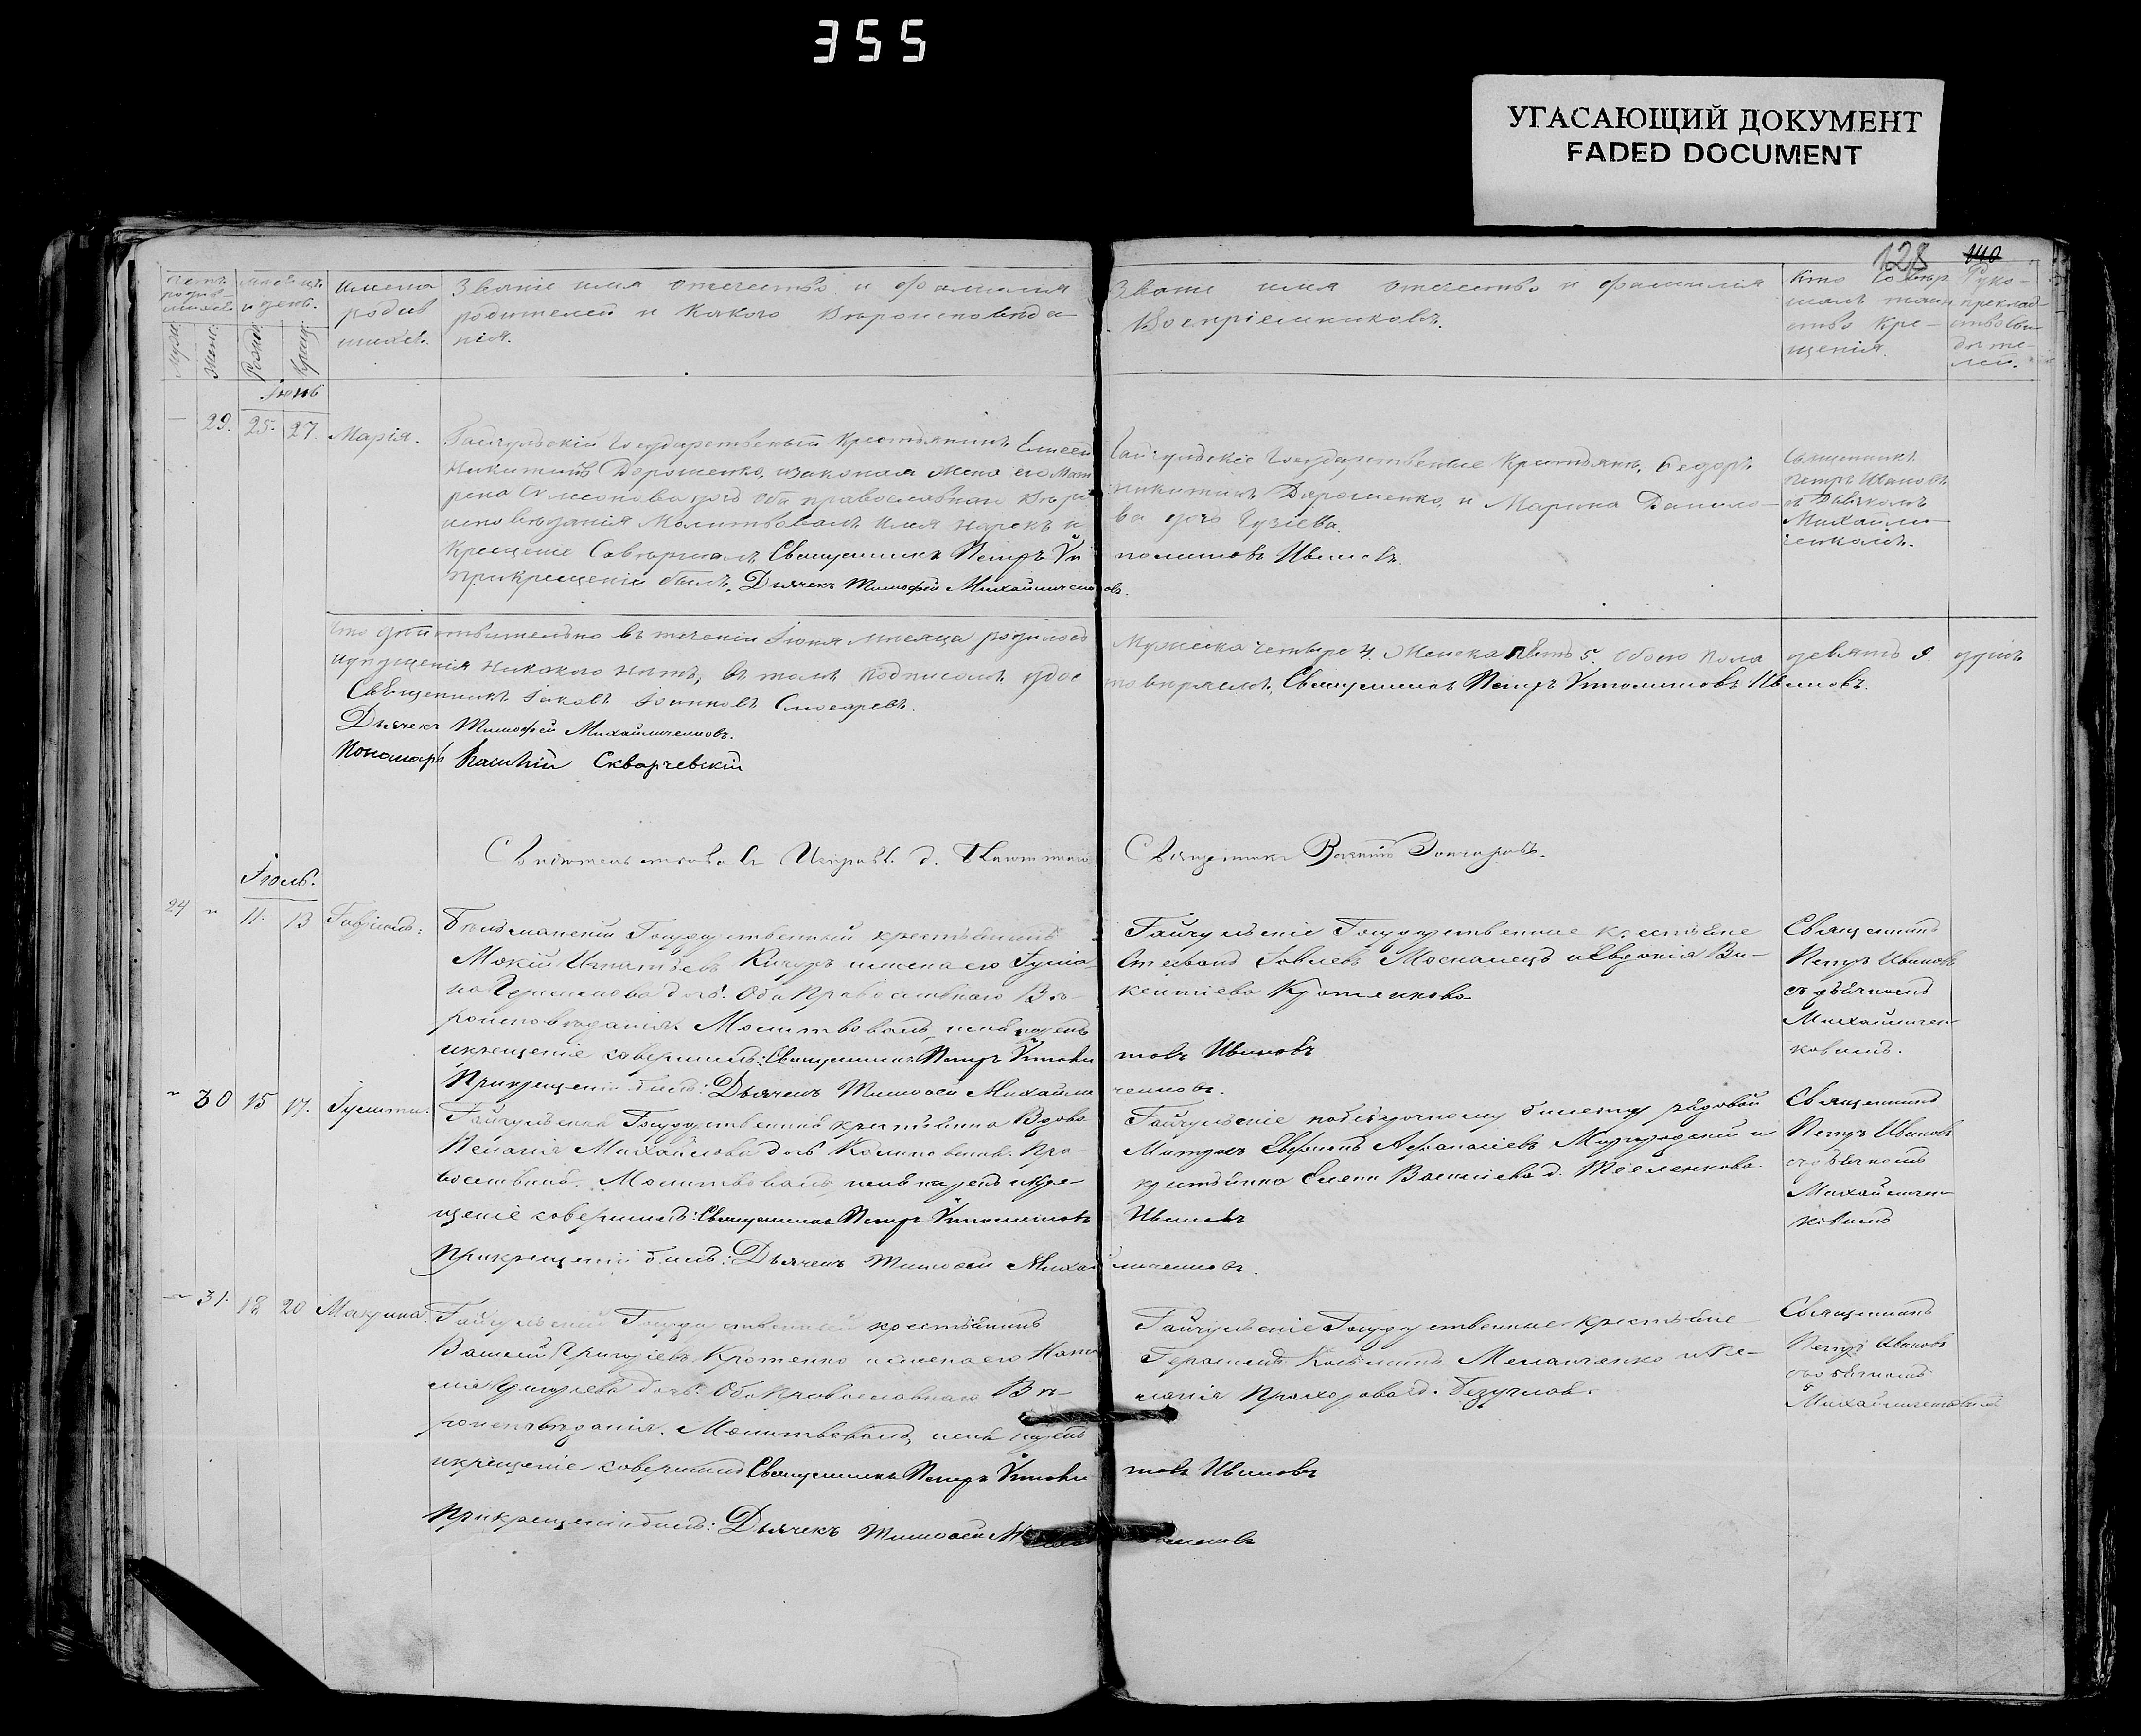 355
УГАСАЮЩИЙ ДОКУМЕНТ
FADED DOCUMENT
128 140
Счетъ родив-
шихся
Мужс. Женс.
Месяцъ и день.
Рожд. Крещ.
Имена
родив
шихся.
Званіе имя отечество и фамилія
родителей и какого Вѣроисповѣда-
нія.
Званіе имя отечество и фамилія
Воспріемниковъ.
Кто совер
шалъ таин
ство кре-
щенія.
Руко-
приклад-
ство сви-
дѣте-
лей.
Іюнь
— 29. 25. 27. Марія.
Гайчульскій Государственый крестьянинъ Елисей
Никитинъ Дорошенко, изаконая жена его Мат
рона Симеонова дочь оба православнаи вѣро
исповѣданія Молитвовалъ имя нарекъ и
Крещеніе Совершалъ Священникъ Петръ
прикрещеніи былъ, Дьячекъ Тимофей Михайличенковъ.
Гайчулскіе Государственые Крестьяне, Федоръ
Никитинъ Дорошенко, и Марина Данило-
ва дочь Гузіева.
Ивановъ.
Священникъ
Петръ Ивановъ
съ Дьячкомъ
Михайли-
ченкомъ.
Что дѣйствительно въ теченіи Іюня месяца родилось
Мужеска четыре 4. Женска пять 5. Обоего пола девять 9. душъ
ипущенія никакого нѣтъ, въ томъ подписомъ удос
товѣряемъ, Священникъ Петръ Ивановъ.
Священникъ Іаковъ Іоанновъ Слюсаревъ.
Дьячекъ Тимофей Михайличенковъ.
Пономарь Василій Скварчевскій
Свидѣтельствовалъ Исправл. д.
Священникъ Василій Гончаровъ.
Іюль.
24 " 11. 13 Гавріилъ.
Бельманскій Государственный крестьянинъ
Мокій Игнатьевъ Качуръ ижена его Іулія-
на дочь. Оба Православнаго Вѣ-
роисповѣданія Молитвовалъ, имя нарекъ
икрещеніе совершилъ: Священникъ Петръ
Прикрещеніи былъ: Дьячекъ Тимофей Михайли
Гайчульскіе Государственные крестьяне
Стефанъ Іовлевъ Москалецъ и Евдокія Ви-
кентіева Кротенкова
Ивановъ
ченковъ.
Священникъ
Петръ Ивановъ
съ дьячкомъ
Михайличен-
ковымъ.
" 30 15 17. Іулитта.
Гайчульская Государственная крестьянка Вдова
Пелагія Михайлова дочь Пра-
вославная. Молитвовалъ, имя нарекъ икре-
щеніе совершилъ: Священникъ Петръ
Прикрещеніи былъ: Дьячекъ Тимофей Михай
Гайчульскіе побезсрочному билету рядовой
Митрофанъ Афанасіевъ Миргородскій и
крестьянка Елена Василіева д. Тесленкова.
Ивановъ
личенковъ.
Священникъ
Петръ Ивановъ
съ дьячкомъ
Михайличен-
ковымъ
— 31. 18 20 Макрина.
Гайчульскій Государственный крестьянинъ
Василій Григоріевъ Кротенко ижена его Ната
лія Григоріева дочь. Оба Православнаго Вѣ-
роисповѣданія. Молитвовалъ, имя нарекъ
икрещеніе совершилъ Священникъ Петръ
Прикрещеніи былъ: Дьячекъ Тимофей
Гайчульскіе Государственные Крестьяне
Герасимъ Меланченко и Пе-
лагія Прохорова д.
Ивановъ
Священникъ
Петръ Ивановъ
съ дьячкомъ
Михайличенковымъ